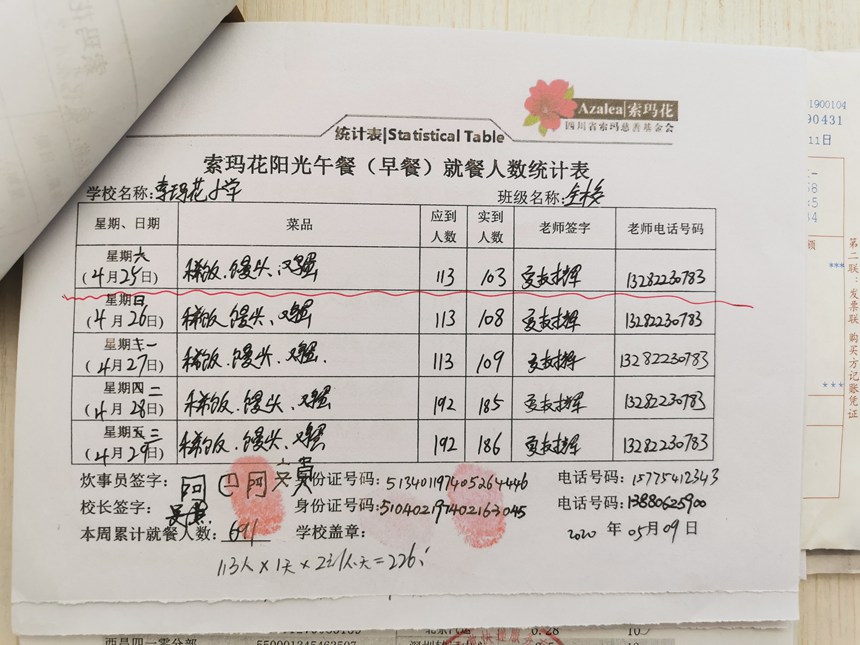 1900104
90431
11日
Azalea|索玛花
四川省索玛慈善基金会
统计表|Statistical Table
索玛花阳光午餐（早餐）就餐人数统计表
学校名称:索玛花小学 班级名称:全校
星期、日期 菜品 应到人数 实到人数 老师签字 老师电话号码
星期六 (4月25日) 稀饭、馒头、鸡蛋 113 103 13282230783
星期日 (4月26日) 稀饭、馒头、鸡蛋 113 108 13282230783
星期一 (4月27日) 稀饭、馒头、鸡蛋. 113 109 13282230783
星期四二 (4月28日) 稀饭、馒头、鸡蛋 192 185 13282230783
星期五三 (4月29日) 稀饭、馒头、鸡蛋 192 186 13282230783
炊事员签字: 阿巴阿 身份证号码: 513401197405264446 电话号码: 15775412343
校长签字: 身份证号码:510402197402163045 电话号码:13880625900
本周累计就餐人数: 691 学校盖章: 2020年05月09日
113人×1天×2元/人.天=226
第二联：发票联 购买方记账凭证
西昌四一零分部